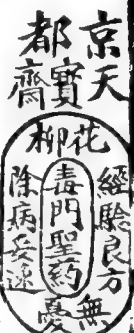 京都
天寶齋
花柳
毒門聖药
經驗良方
除病妥速
無憂